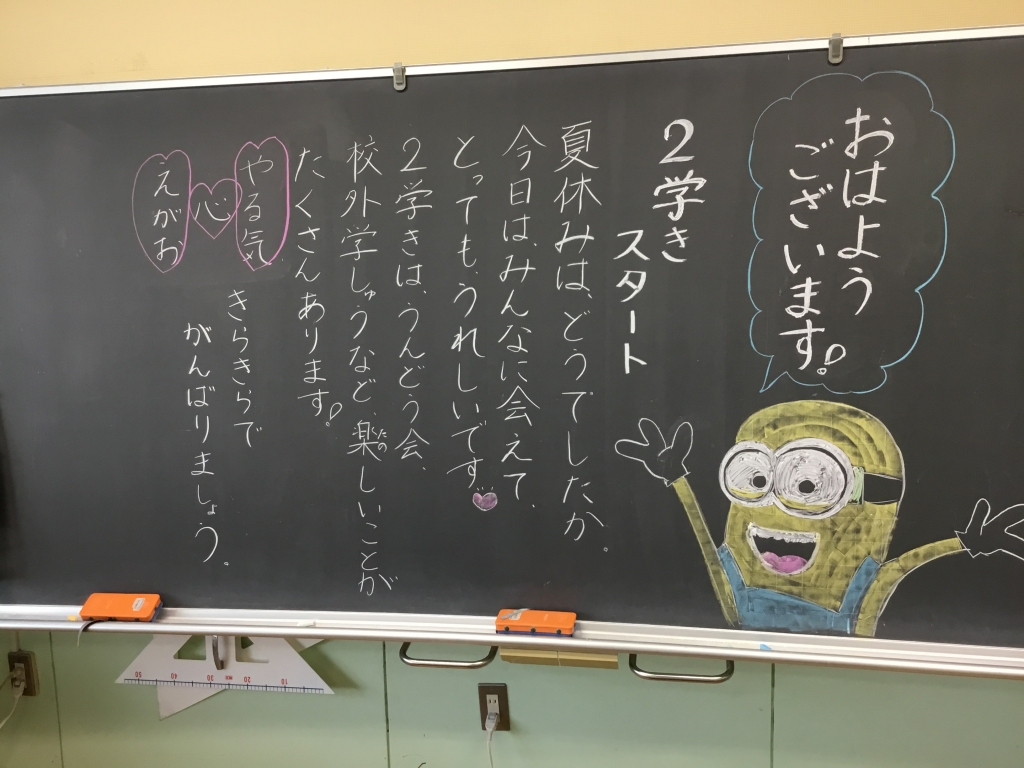 おはよう
ございます!
2学き
スタート
夏休みは、どうでしたか。
今日は、みんなに会えて、
とっても、うれしいです
2学きは、うんどう会、
校外学しゅうなど、楽しいことが
たの
たくさんあります!
やる気
心
えがお
きらきらで
がんばりましょう。
50 40 30 20 10